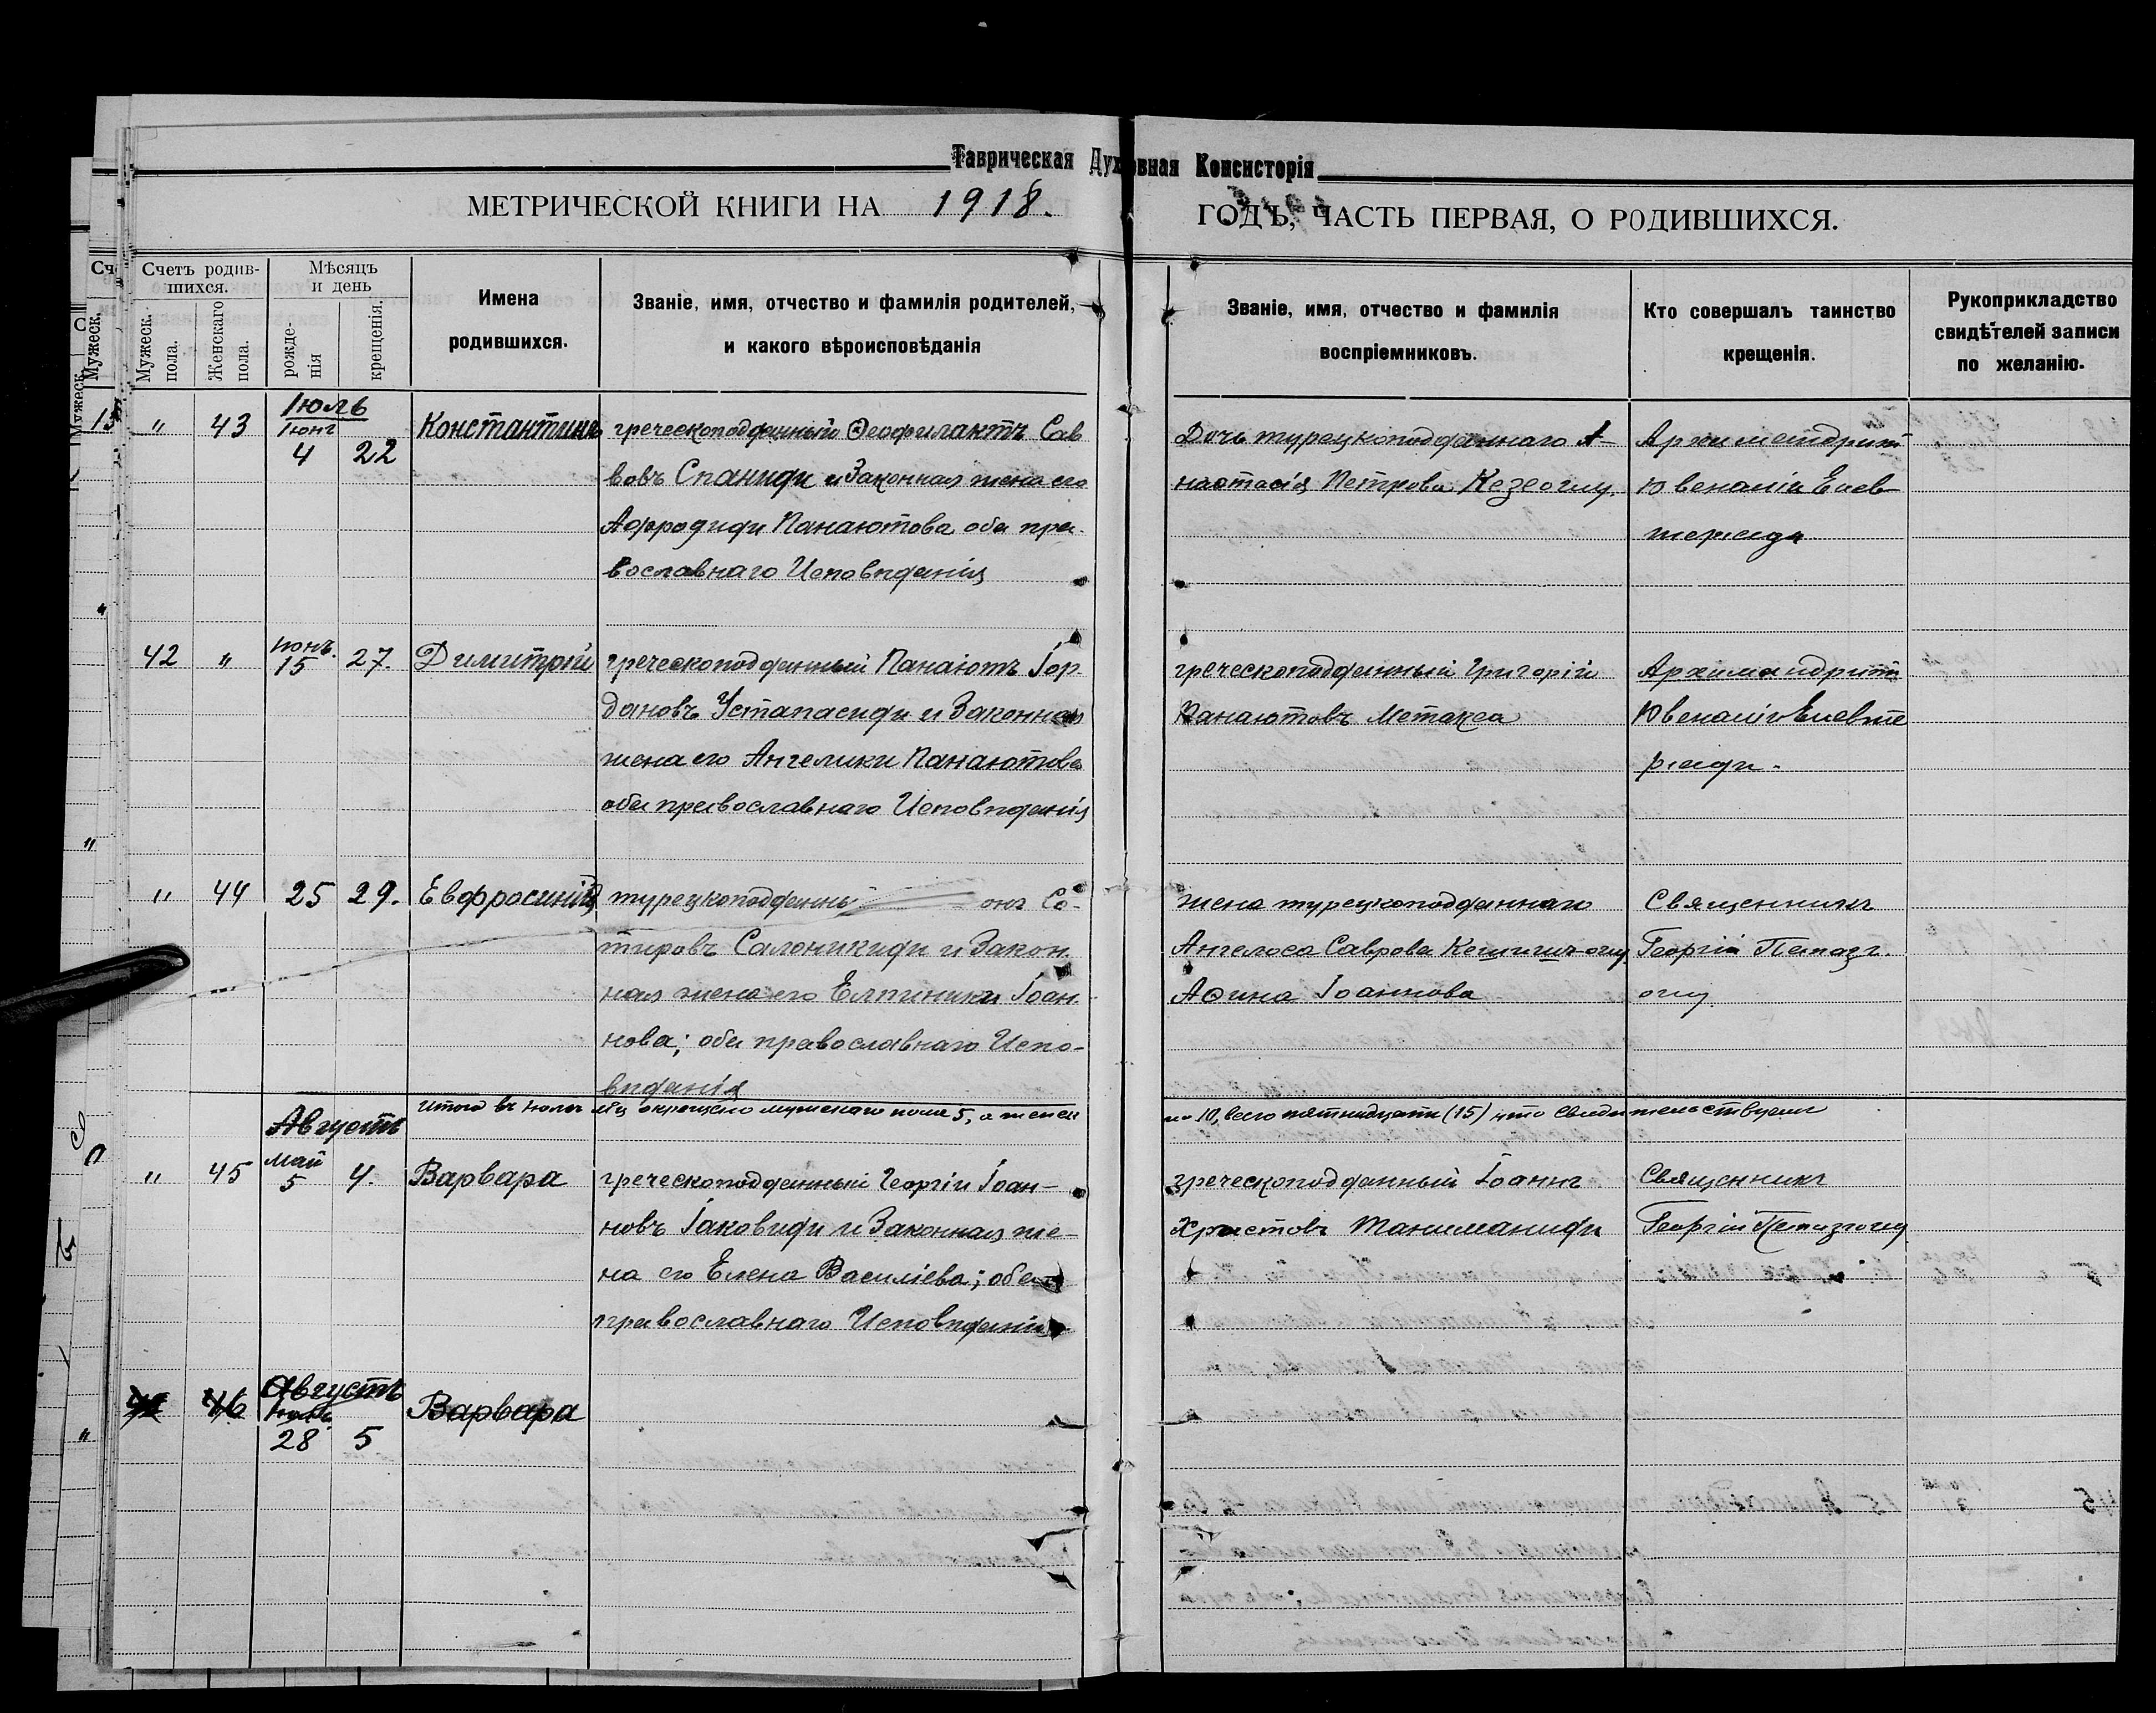 Таврическая Духовная Консисторія
МЕТРИЧЕСКОЙ КНИГИ НА 1918. ГОДЪ, ЧАСТЬ ПЕРВАЯ, О РОДИВШИХСЯ.
Счетъ родив-
шихся.
Мужеск. пола.
Женскаго пола.
Мѣсяцъ
и день
рожде-
нія
крещенія.
Имена
родившихся.
Званіе, имя, отчество и фамилія родителей,
и какого вѣроисповѣданія
Званіе, имя, отчество и фамилія
воспріемниковъ.
Кто совершалъ таинство
крещенія.
Рукоприкладство
свидѣтелей записи
по желанію.
Іюль
" 43 Іюнь 4 22 Константинъ
греческоподданный Ѳеофилактъ Сав
вовъ Спаниди и Законная жена его
Афродиди Панаютова оба пра-
вославнаго Исповѣданія
Дочь турецкоподданнаго А-
настасія Петрова Кезеоглу.
Архимандритъ
Ювеналій Елев
териади
42 " Іюнь. 15 27. Димитрій
греческоподданный Панаіотъ Іор-
дановъ Устапасиди и Законная
жена его Ангелики Панаютова
оба православнаго Исповѣданія
греческоподданный Григорій
Панаютовъ Метакса
Архимандритъ
Ювеналій Елевте
риади.
" 44 25 29. Евфросинія
турецкоподданны онъ Со-
тировъ Салоникиди и Закон.
ная жена его Елпиники Іоан
нова; оба православнаго Испо-
вѣданія
жена турецкоподданнаго
Ангелоса Саврова Кешишъ-оглу.
Аѳина Іоаннова
Священникъ
Георгій Папазъ.
оглу.
Итого въ Іюлѣ м-цѣ окрещено мужскаго пола 5, а женск
и-10, всего пятнадцать (15) что свидѣтельствуемъ
Августъ
" 45 Май 5 4. Варвара
греческоподданный Георгій Іоан-
новъ Іаковиди и Законная же-
на его Елена Василіева; оба
православнаго Исповѣданія
греческоподданный Іоаннъ
Христовъ Таниманиди
Священникъ
Георгій Папазъоглу
Августъ
46 28 5 Варвара